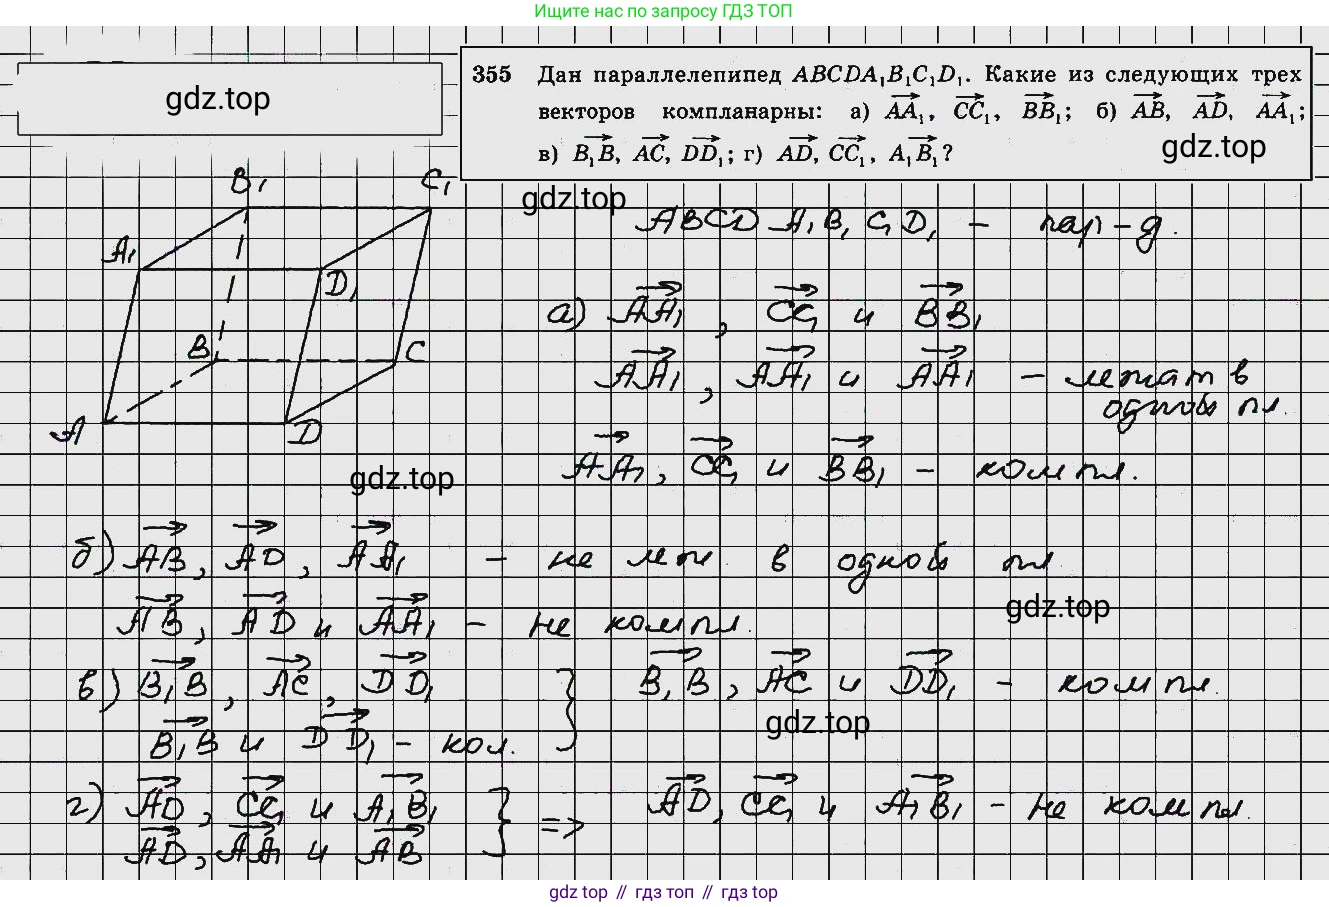 Ищите нас по запросу ГДЗ ТОП
gdz.top
355 Дан параллелепипед ABCDA₁B₁C₁D₁. Какие из следующих трех
векторов компланарны: а) AA₁, CC₁, BB₁; б) AB, AD, AA₁;
в) B₁B, AC, DD₁; г) AD, CC₁, A₁B₁?
gdz.top
gdz.top
B₁ C₁ A₁ D₁ B C A D
ABCD A₁B₁C₁D₁ – пар-д.
а) AA₁, CC₁ и BB₁
AA₁, AA₁ и AA₁ – лежат в
одной пл.
AA₁, CC₁ и BB₁ – компл.
gdz.top
б) AB, AD, AA₁ – не леж. в одной пл
gdz.top
AB, AD и AA₁ – не компл.
в) B₁B, AC, DD₁ } B₁B, AC и DD₁ – компл.
gdz.top
B₁B и DD₁ – кол.
г) AD, CC₁ и A₁B₁ } => AD, CC₁ и A₁B₁ – не компл.
AD, AA₁ и AB
gdz top // гдз топ // gdz top